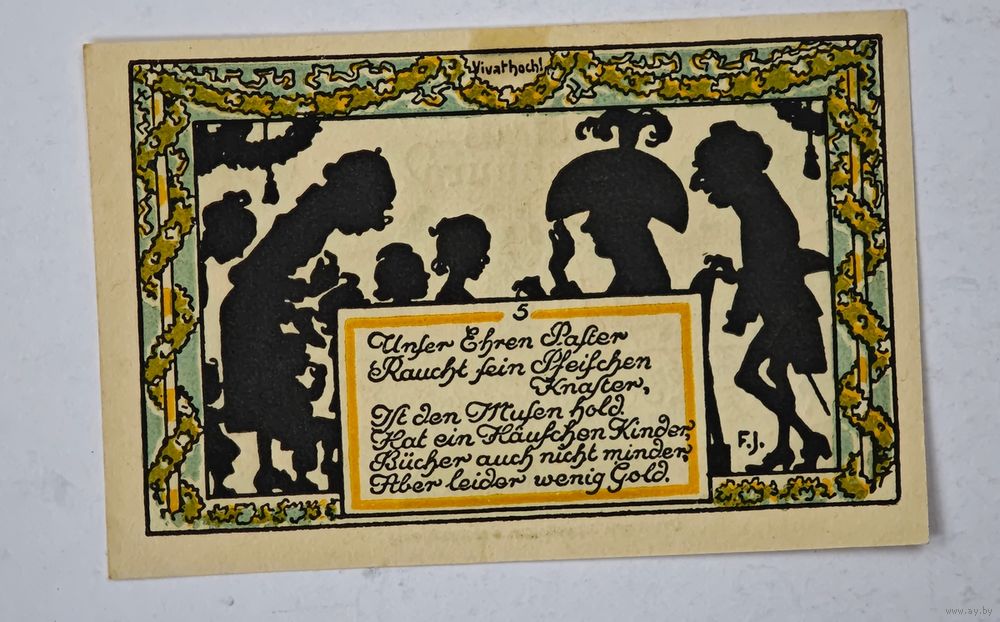 Vivat hoch!
5
Unser Ehren Paster
Raucht sein Pfeifchen
Knaster,
Ist den Musen hold.
Hat ein Häufchen Kinder,
Bücher auch nicht minder,
Aber leider wenig Gold.
F.J.
www.ay.by